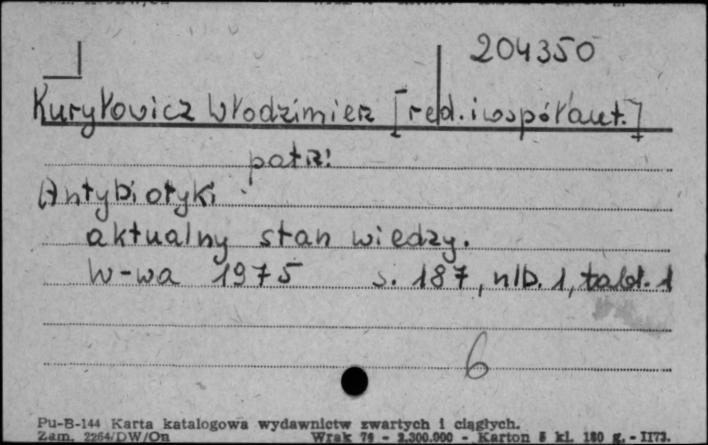 204350
Kuryłowicz Włodzimierz [red. i współaut.]
patrz:
Antybiotyki
aktualny stan wiedzy.
W-wa 1975 s. 187, nlb. 1, tabl. 1
6
Pu-B-144 Karta katalogowa wydawnictw zwartych i ciągłych.
Zam. 2264/DW/On Wrak 74 - 2.300.000 - Karton 5 kl. 180 g. - II73.